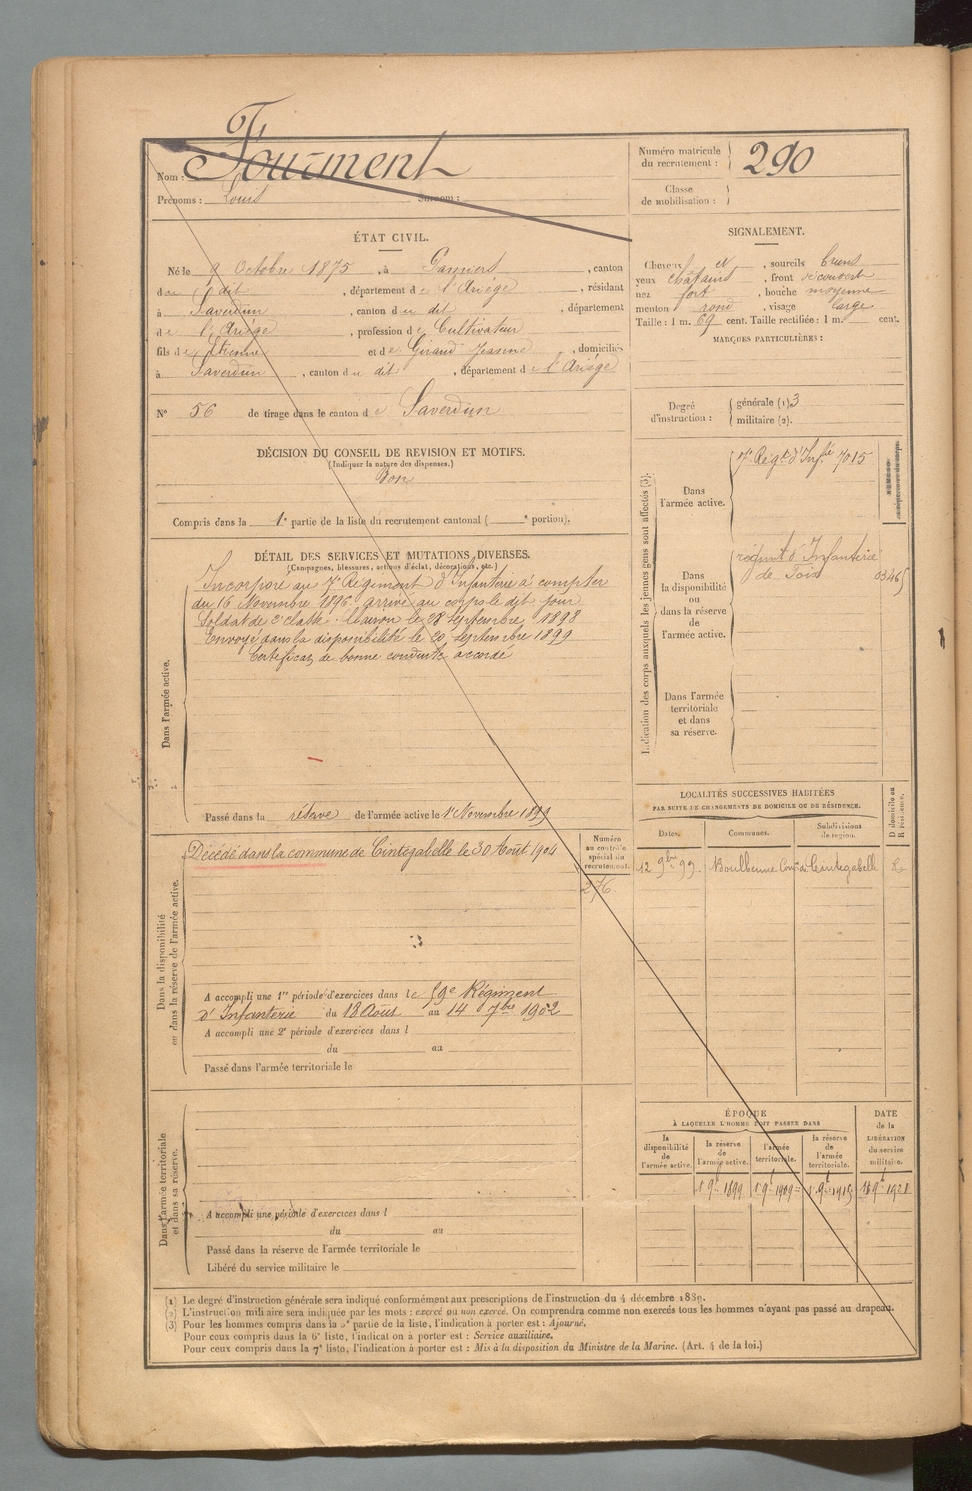 Nom : Fourment
Prénoms : Louis Surnom :
Numéro matricule du recrutement : 290
Classe de mobilisation :
ÉTAT CIVIL.
Né le 9 Octobre 1875, à Pamiers, canton
du dit, département de l'Ariège, résidant
à Saverdun, canton du dit, département
de l'Ariège, profession de Cultivateur
fils de Etienne et de Giraud Jeanne, domiciliés
à Saverdun, canton du dit, département de l'Ariège
N° 56 de tirage dans le canton de Saverdun
SIGNALEMENT.
Cheveux et, sourcils bruns
yeux châtains, front découvert
nez fort, bouche moyenne
menton rond, visage large
Taille : 1 m. 69 cent. Taille rectifiée : 1 m. cent.
MARQUES PARTICULIÈRES :
Degré d'instruction : générale (1). 3
militaire (2).
DÉCISION DU CONSEIL DE REVISION ET MOTIFS.
(Indiquer la nature des dispenses.)
Bon
Compris dans la 1e partie de la liste du recrutement cantonal ( e portion).
DÉTAIL DES SERVICES ET MUTATIONS DIVERSES.
(Campagnes, blessures, actions d'éclat, décorations, etc.)
Dans l'armée active.
Incorporé au 7e Régiment d'Infanterie à compter
du 16 Novembre 1896. arrivé au corps le dit jour
Soldat de 2e classe. Clairon le 28 Septembre 1898
Envoyé dans la disponibilité le 20 Septembre 1899
Certificat de bonne conduite accordé
Passé dans la réserve de l'armée active le 1er Novembre 1899
Indication des corps auxquels les jeunes gens sont affectés (3).
Dans l'armée active.
7e Régt d'Infie 7015
Dans la disponibilité ou dans la réserve de l'armée active.
régimt d'Infanterie
de Foix
03465
Dans l'armée territoriale et dans sa réserve.
Dans la disponibilité ou dans la réserve de l'armée active.
Décédé dans la commune de Cintegabelle le 30 Août 1904
Numéro au contrôle spécial du recrutement.
276.
A accompli une 1re période d'exercices dans le 59e Régiment
d'Infanterie du 18 Août au 14 7bre 1902
A accompli une 2e période d'exercices dans l
du au
Passé dans l'armée territoriale le
LOCALITÉS SUCCESSIVES HABITÉES
PAR SUITE DE CHANGEMENTS DE DOMICILE OU DE RÉSIDENCE.
Dates. Communes. Subdivisions de région. D domicile ou R résidence.
12 9bre 99. Boulbonne Comne de Cintegabelle R
Dans l'armée territoriale et dans sa réserve.
A accompli une période d'exercices dans l
du au
Passé dans la réserve de l'armée territoriale le
Libéré du service militaire le
ÉPOQUE
À LAQUELLE L'HOMME DOIT PASSER DANS
la disponibilité de l'armée active. la réserve de l'armée active. l'armée territoriale. la réserve de l'armée territoriale.
DATE de la LIBÉRATION du service militaire.
1 9bre 1899 1 9bre 1909 1 9bre 1915
(1) Le degré d'instruction générale sera indiqué conformément aux prescriptions de l'instruction du 4 décembre 1889.
(2) L'instruction militaire sera indiquée par les mots : exercé ou non exercé. On comprendra comme non exercés tous les hommes n'ayant pas passé au drapeau.
(3) Pour les hommes compris dans la 5e partie de la liste, l'indication à porter est : Ajourné.
Pour ceux compris dans la 6e liste, l'indication à porter est : Service auxiliaire.
Pour ceux compris dans la 7e liste, l'indication à porter est : Mis à la disposition du Ministre de la Marine. (Art. 4 de la loi.)